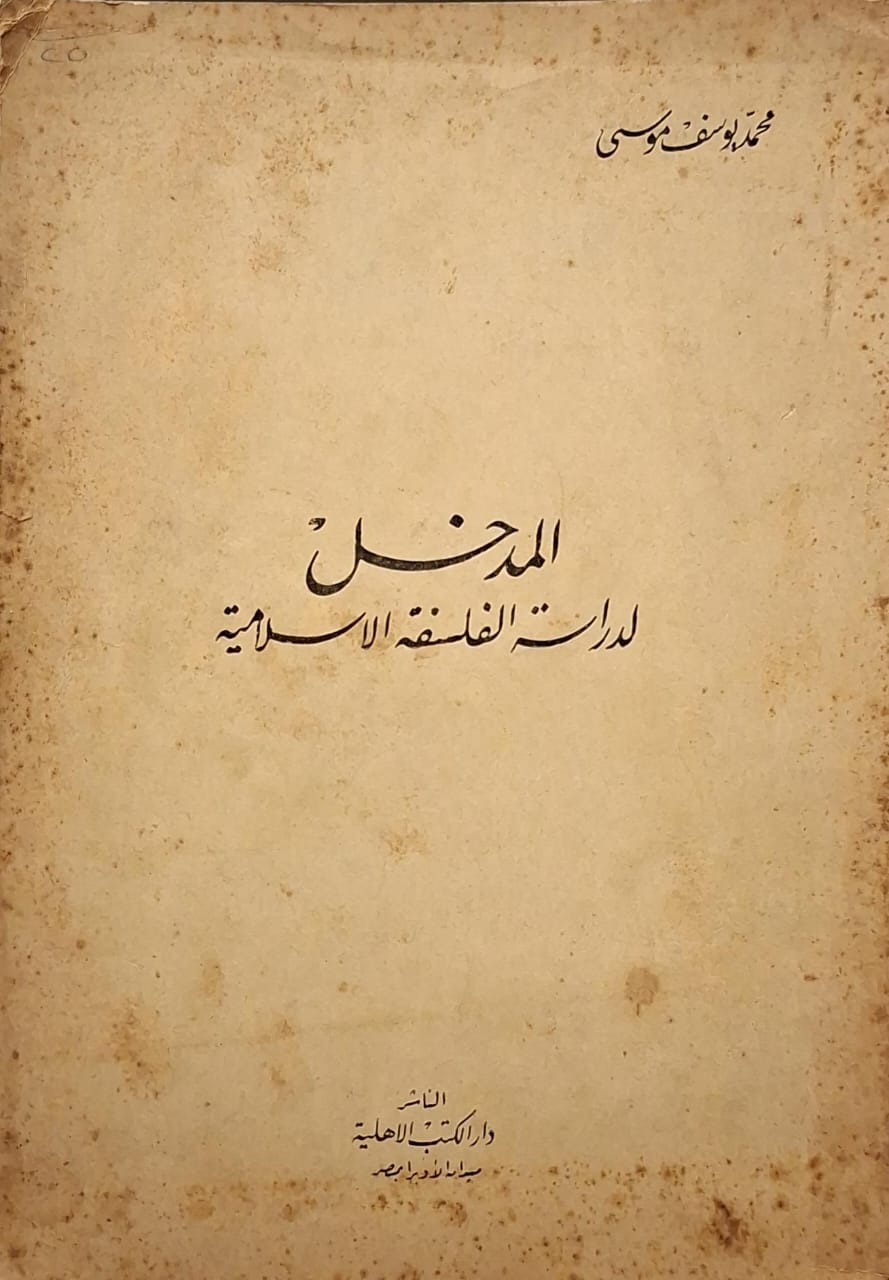 محمد يوسف موسى
المدخل
لدراسة الفلسفة الاسلامية
الناشر
دار الكتب الاهلية
ميدان الأوبرا بمصر